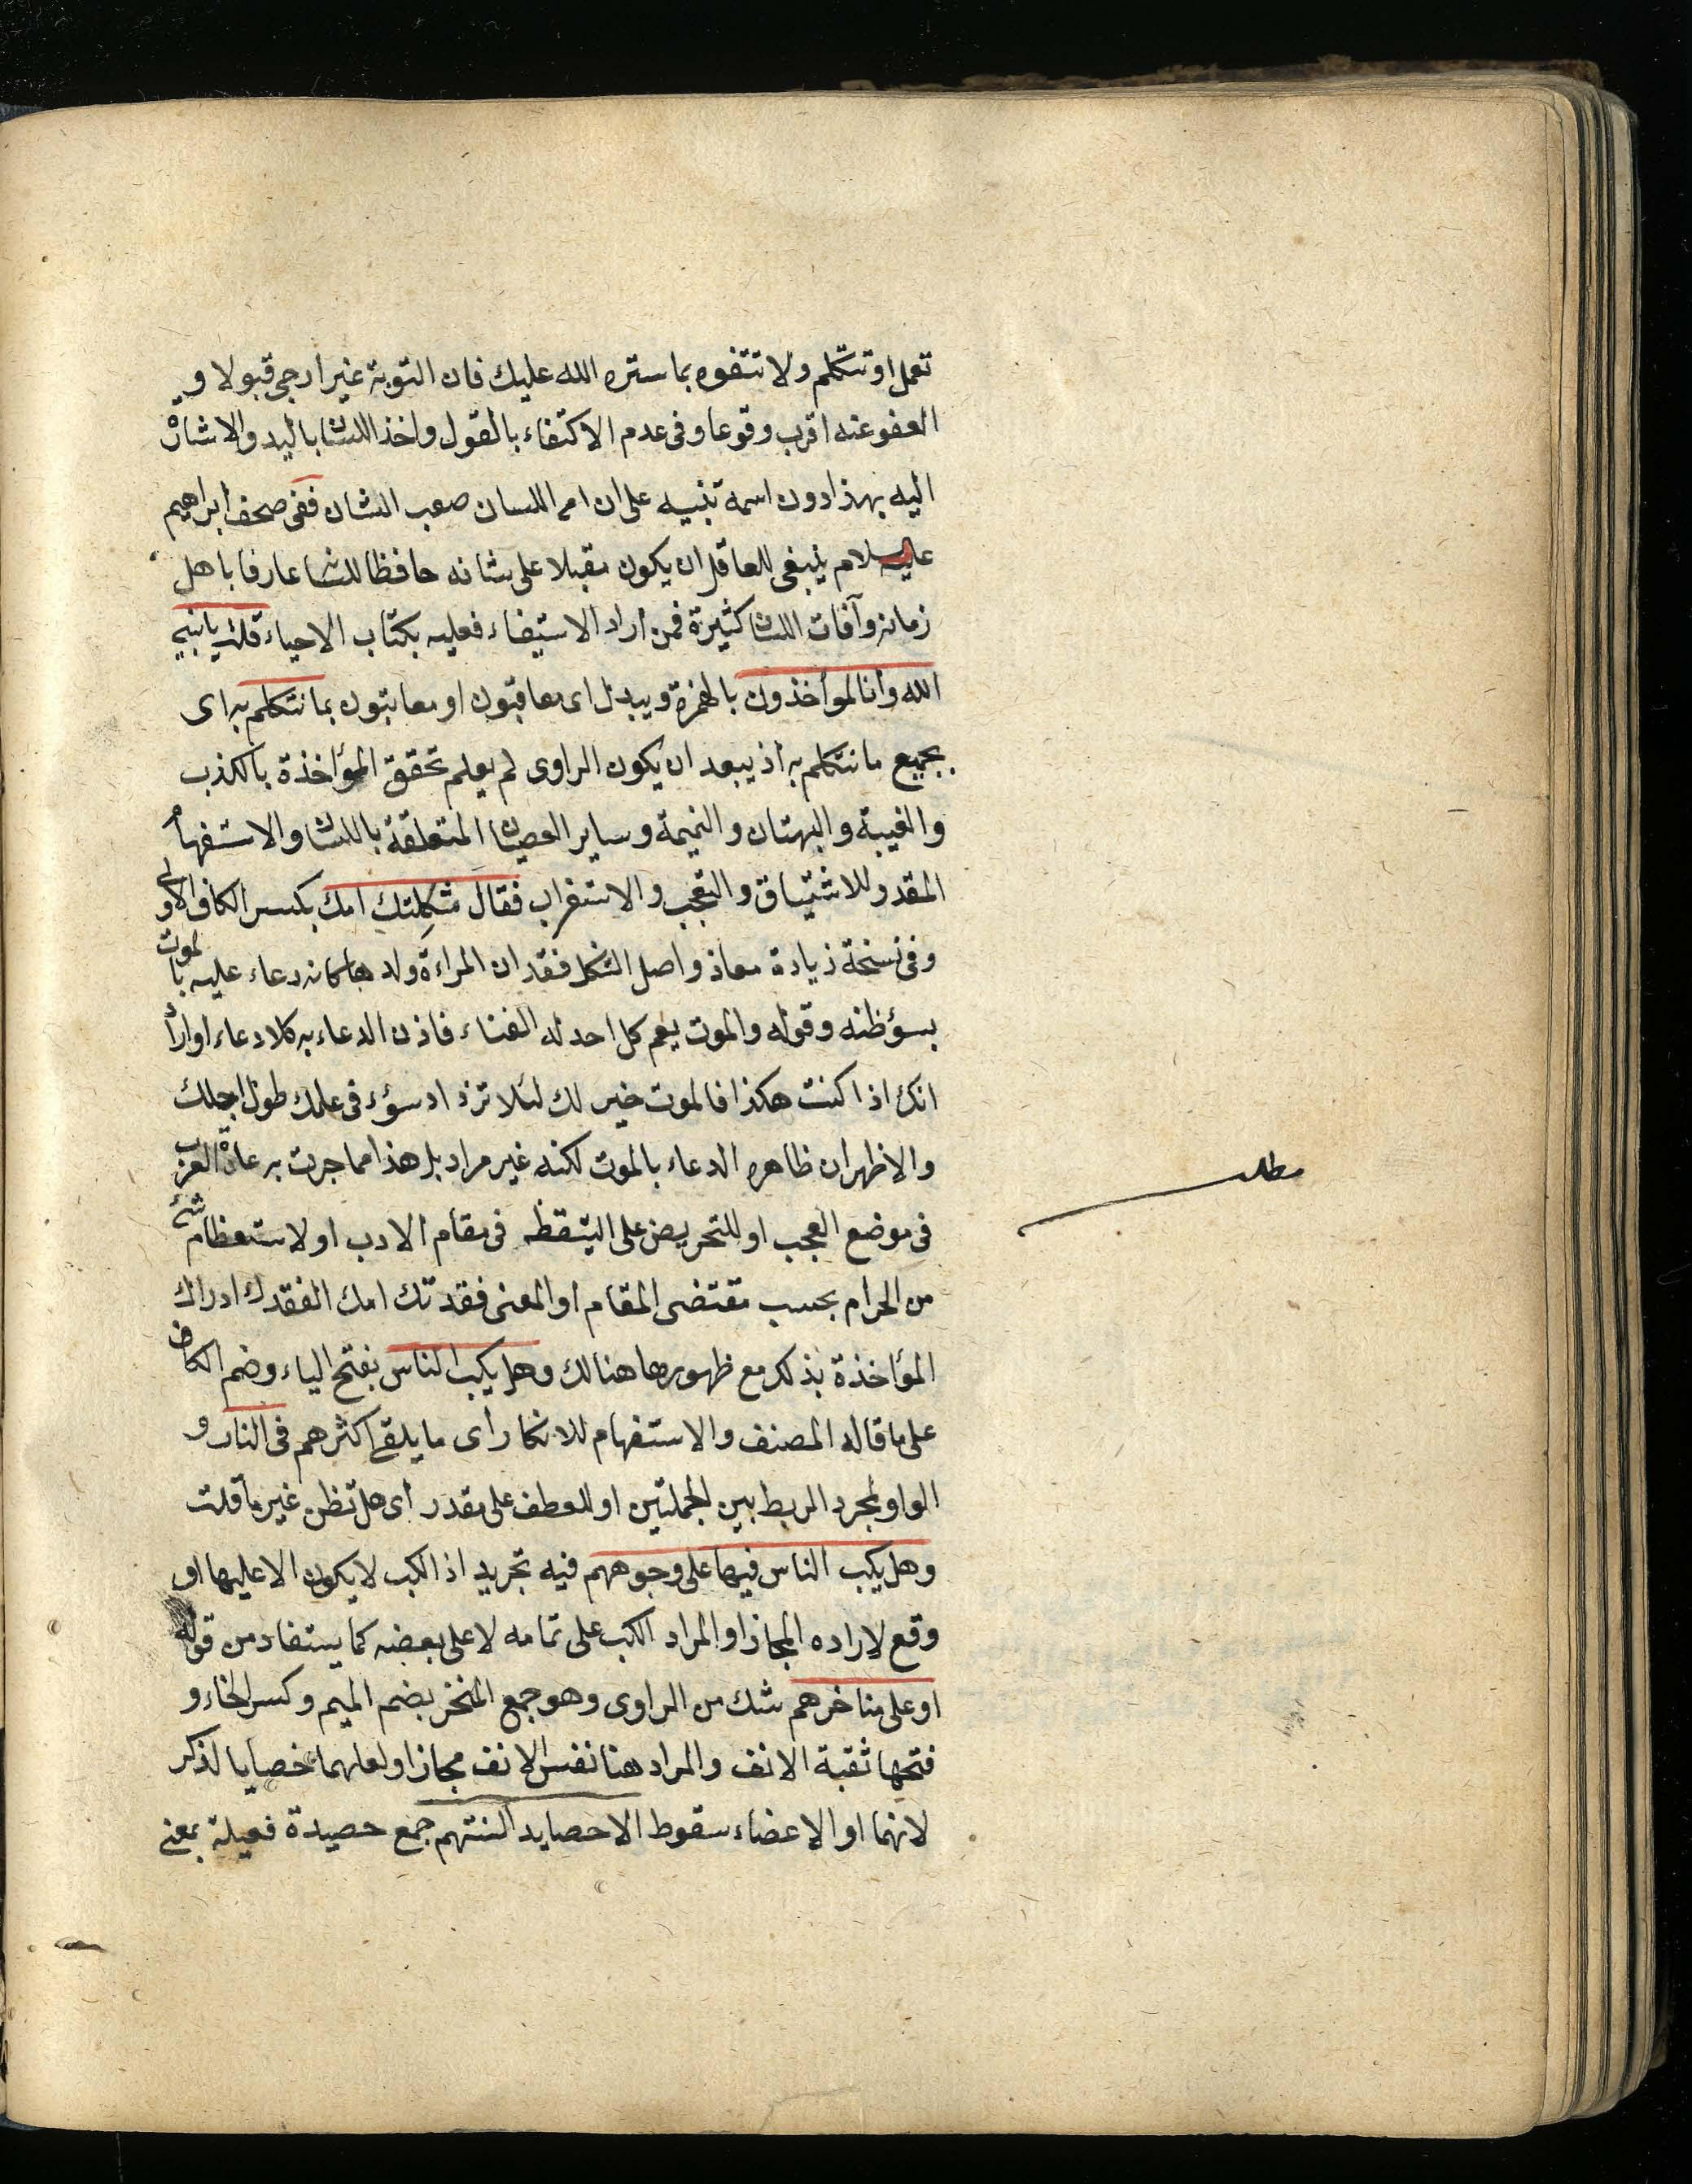 تعمل او تتكلم ولا تتفوه بما ستره الله عليك فان التوبة غير ارجى قبولا و
العفو عنه اقرب وقوعا وفى عدم الاكتفاء بالقول واخذ اللسان باليد والاشارة
اليه بهذا دون اسمه تنبيه على ان امر اللسان صعب الشان ففى صحف ابراهيم
عليه السلام ينبغى للعاقل ان يكون مقبلا على شانه حافظا للسانه عارفا باهل
زمانه وآفات اللسان كثيرة فمن أراد الاستيفاء فعليه بكتاب الاحياء قلت يا نبي
الله وأنا لمواخذون بالهمزة ويبدل اى معاقبون او معاتبون بما نتكلم به اى
بجميع ما نتكلم به اذ يبعد ان يكون الراوى لم يعلم تحقق المؤاخذة بالكذب
والغيبة والبهتان والنميمة وساير العصيان المتعلقة باللسان والاستفهام
المقدر للاشتياق والتعجب والاستغراب فقال ثكلتك امك بكسر الكاف الاولى
وفى نسخة زيادة معاذ واصل الثكل فقدان المراءة ولدها كانه دعاء عليه بالموت
بسؤ ظنه وقوله والموت يعم كل احد له الفناء فاذن الدعاء به كلا دعاء او اراد
انك اذا كنت هكذا فالموت خير لك لئلا تزداد سؤء فى علمك طول اجلك
والاظهر ان ظاهره الدعاء بالموت لكنه غير مراد بل هذا مما جرت به عادة العرب
فى موضع العجب او للتحريض على التيقظ فى مقام الادب او لاستعظام شئ
من الحرام بحسب مقتضى المقام او المعنى فقدتك امك الفقدك ادراك
المؤاخذة بذلك مع ظهورها هنالك وهل يكب الناس بفتح الياء وضم الكاف
على ما قاله المصنف والاستفهام للانكار أى ما يلقى اكثرهم فى النار و
الواو لمجرد الربط بين الجملتين او للعطف على مقدر أى هل تظن غير ما قلت
وهل يكب الناس فيها على وجوههم فيه تجريد اذ الكب لا يكون الا عليها او
وقع لاراده المجاز او المراد الكب على تمامه لا على بعضه كما يستفاد من قوله
او على مناخرهم شك من الراوى وهو جمع المنخر بضم الميم وكسر الخاء و
فتحها ثقبة الانف والمراد هنا نفس الانف مجازا ولعلهما خصايا لذكر
لانهما او الاعضاء سقوط الا حصايد السنتهم جمع حصيدة فعيلة بمعنى
مطلب